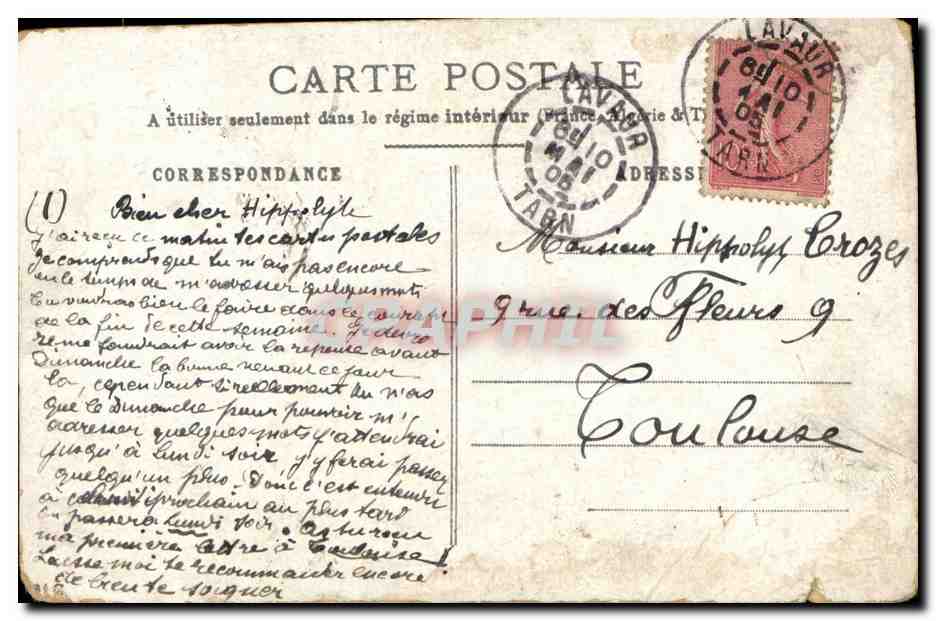 CARTE POSTALE
A utiliser seulement dans le régime intérieur (France, Algérie & T
CORRESPONDANCE
ADRESS
LAVAUR
8E 10
MAI
05
TARN
LAVAUR
8E 10
MAI
05
TARN
(1) Bien cher Hippolyte
J'ai reçu ce matin tes cartes postales
Je comprends que tu n'ais pas encore
eu le temps de m'adresser quelques mots
Tu voudras bien le faire dans le courant
de la fin de cette semaine. Je
me faudrait avoir la réponse avant
Dimanche la bonne venant ce jour
là, cependant si réellement tu n'as
que le Dimanche pour pouvoir m'
adresser quelques mots j'attendrai
jusqu'à lundi soir, j'y ferai passer
quelqu'un plus. Donc c'est entendu
à prochain au plus tard
on passera Lundi soir. As tu reçu
ma première lettre à Toulouse
Laisse moi te recommander encore
de bien te soigner
Monsieur Hippolyte Crozes
9 rue des Fleurs 9
Toulouse
GRAPHIL